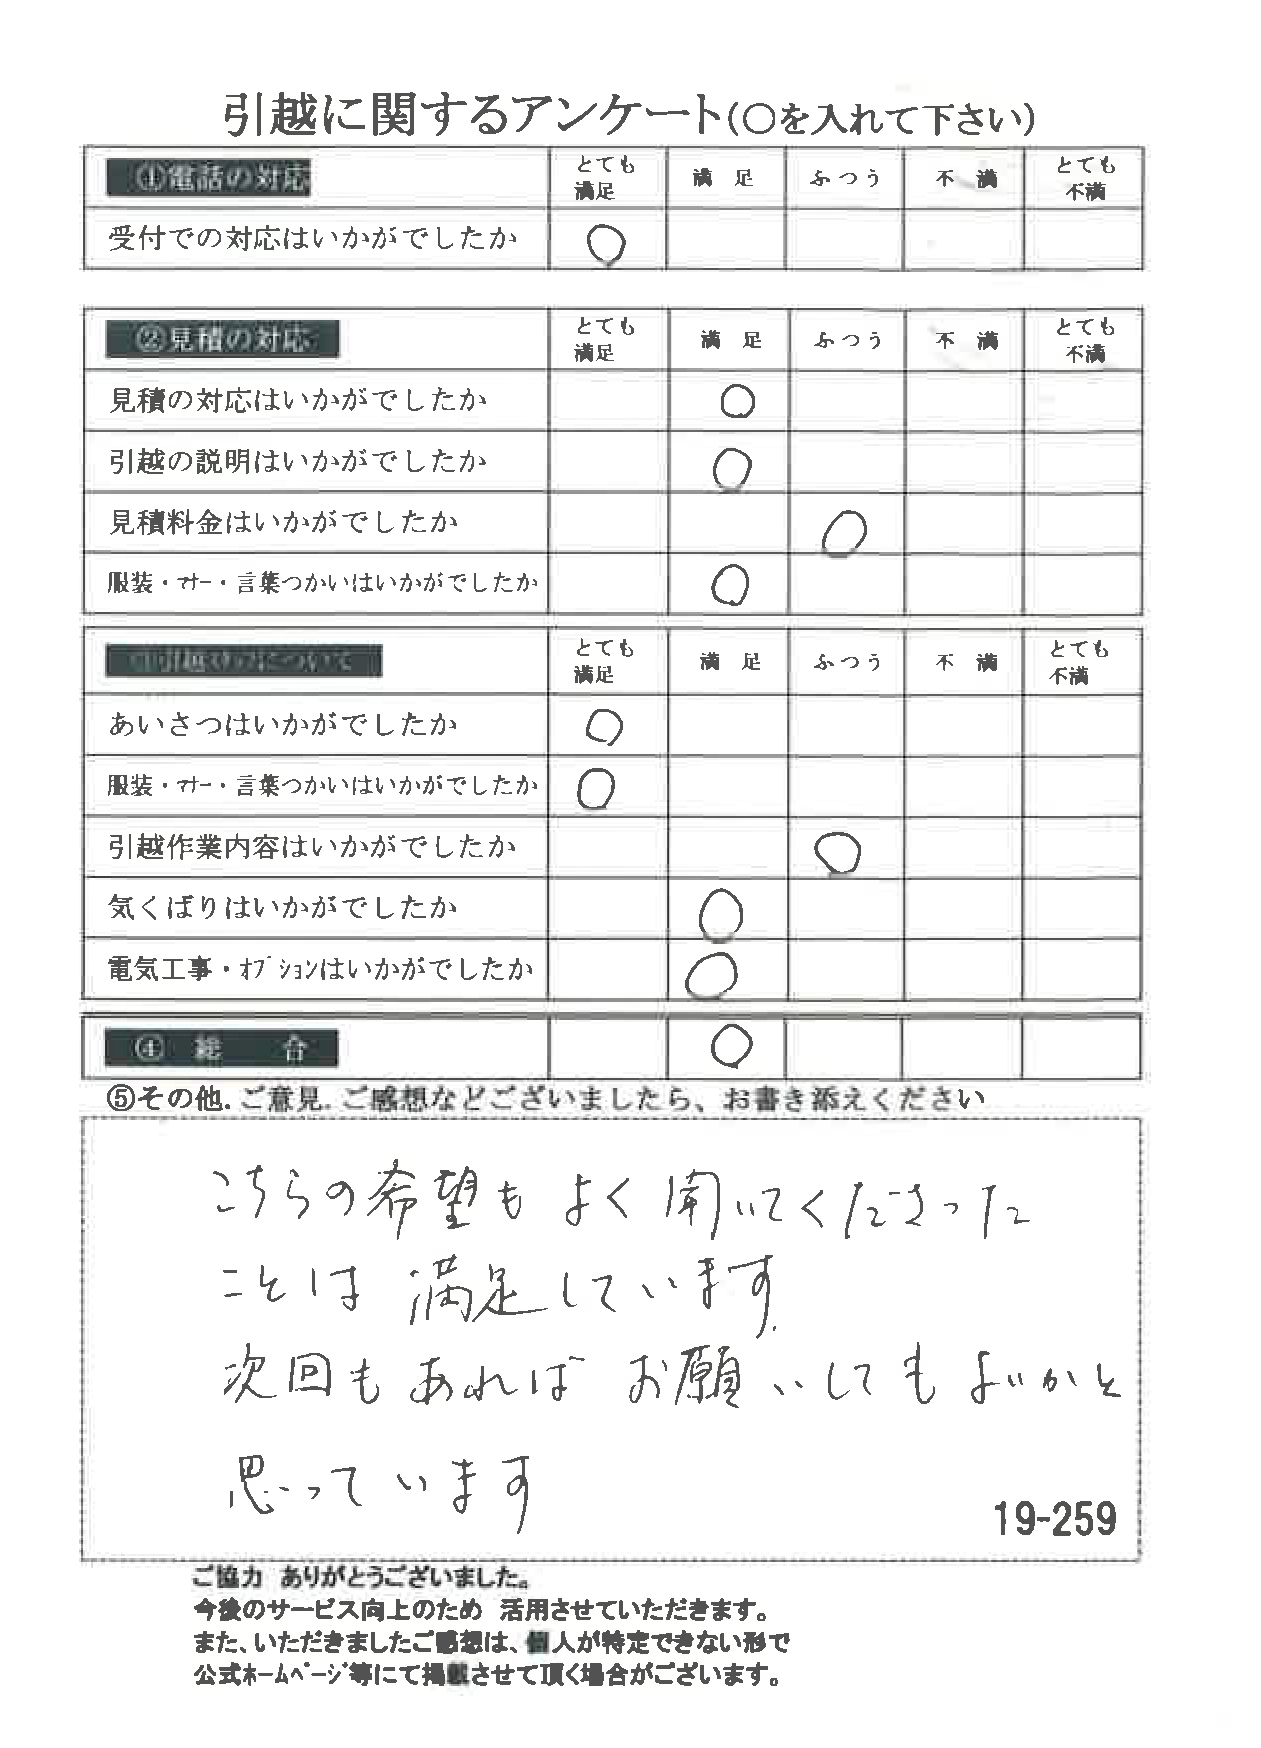 引越に関するアンケート(〇を入れて下さい)
①電話の対応 とても満足 満足 ふつう 不満 とても不満
受付での対応はいかがでしたか 〇
②見積の対応 とても満足 満足 ふつう 不満 とても不満
見積の対応はいかがでしたか 〇
引越の説明はいかがでしたか 〇
見積料金はいかがでしたか 〇
服装・マナー・言葉つかいはいかがでしたか 〇
について とても満足 満足 ふつう 不満 とても不満
あいさつはいかがでしたか 〇
服装・マナー・言葉つかいはいかがでしたか 〇
引越作業内容はいかがでしたか 〇
気くばりはいかがでしたか 〇
電気工事・オプションはいかがでしたか 〇
④ 総 合 〇
⑤その他.ご意見.ご感想などございましたら、お書き添えください
こちらの希望もよく聞いてくださった
ことは満足しています.
次回もあればお願いしてもよいかと
思っています
19-259
ご協力 ありがとうございました。
今後のサービス向上のため 活用させていただきます。
また、いただきましたご感想は、個人が特定できない形で
公式ホームページ等にて掲載させて頂く場合がございます。